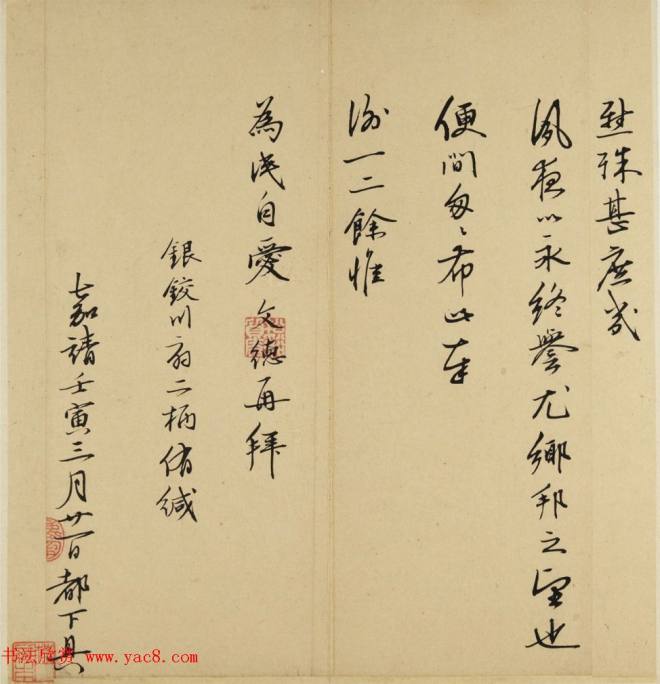 殊甚庶幾
夙夜以永終譽尤鄉邦之望也
便間匆匆希此奉
謝一二餘惟
為民自愛 文德再拜
銀鉸川扇二柄侑緘
嘉靖壬寅三月廿一日都下具
书法欣赏 www.yac8.com